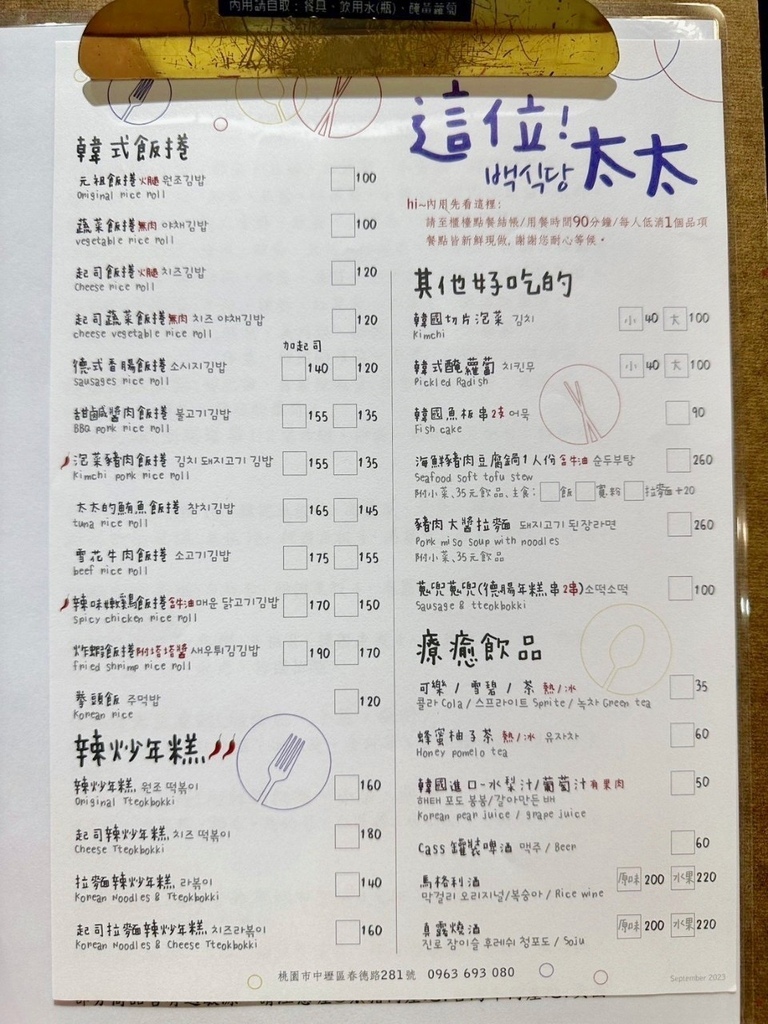 內用請自取：餐具、飲用水(瓶)、醃黃蘿蔔
這位！太太
백식당
hi~內用先看這裡:
請至櫃檯點餐結帳/用餐時間90分鐘/每人低消1個品項
餐點皆新鮮現做,謝謝您耐心等候。
韓式飯捲
元祖飯捲火腿 원조김밥 100
Original rice roll
蔬菜飯捲無肉 야채김밥 100
vegetable rice roll
起司飯捲火腿 치즈김밥 120
Cheese rice roll
起司蔬菜飯捲無肉 치즈 야채김밥 120
cheese vegetable rice roll
加起司
德式香腸飯捲 소시지김밥 140 120
sausages rice roll
甜鹹醬肉飯捲 불고기김밥 155 135
BBQ pork rice roll
泡菜豬肉飯捲 김치 돼지고기 김밥 155 135
Kimchi pork rice roll
太太的鮪魚飯捲 참치김밥 165 145
tuna rice roll
雪花牛肉飯捲 소고기김밥 175 155
beef rice roll
辣味嫩雞飯捲含牛油 매운 닭고기김밥 170 150
spicy chicken rice roll
炸蝦飯捲附塔塔醬 새우튀김김밥 190 170
fried shrimp rice roll
拳頭飯 주먹밥 120
Korean rice
辣炒年糕
辣炒年糕 원조 떡볶이 160
Original Tteokbokki
起司辣炒年糕 치즈 떡볶이 180
Cheese Tteokbokki
拉麵辣炒年糕 라볶이 140
Korean Noodles & Tteokbokki
起司拉麵辣炒年糕 치즈라볶이 160
Korean Noodles & Cheese Tteokbokki
其他好吃的
韓國切片泡菜 김치 小 40 大 100
Kimchi
韓式醃蘿蔔 치킨무 小 40 大 100
Pickled Radish
韓國魚板串2支 어묵 90
Fish cake
海鮮豬肉豆腐鍋1人份含牛油 순두부탕 260
Seafood soft tofu stew
附小菜、35元飲品、主食: 飯 寬粉 拉麵+20
豬肉大醬拉麵 돼지고기 된장라면 260
Pork miso soup with noodles
附小菜、35元飲品
蔥兜蔥兜(德腸年糕串2串) 소떡소떡 100
Sausage & tteokbokki
療癒飲品
可樂 / 雪碧 / 茶 熱/冰 35
콜라 Cola / 스프라이트 Sprite / 녹차 Green tea
蜂蜜柚子茶 熱/冰 유자차 60
Honey pomelo tea
韓國進口-水梨汁/葡萄汁有果肉 50
해태 포도 봉봉/갈아만든 배
Korean pear juice / grape juice
Cass 罐裝啤酒 맥주 / Beer 60
馬格利酒 原味 200 水果 220
막걸리 오리지널/복숭아 / Rice wine
真露燒酒 原味 200 水果 220
진로 참이슬 후레쉬 청포도 / Soju
桃園市中壢區春德路281號 0963 693 080
September 2023